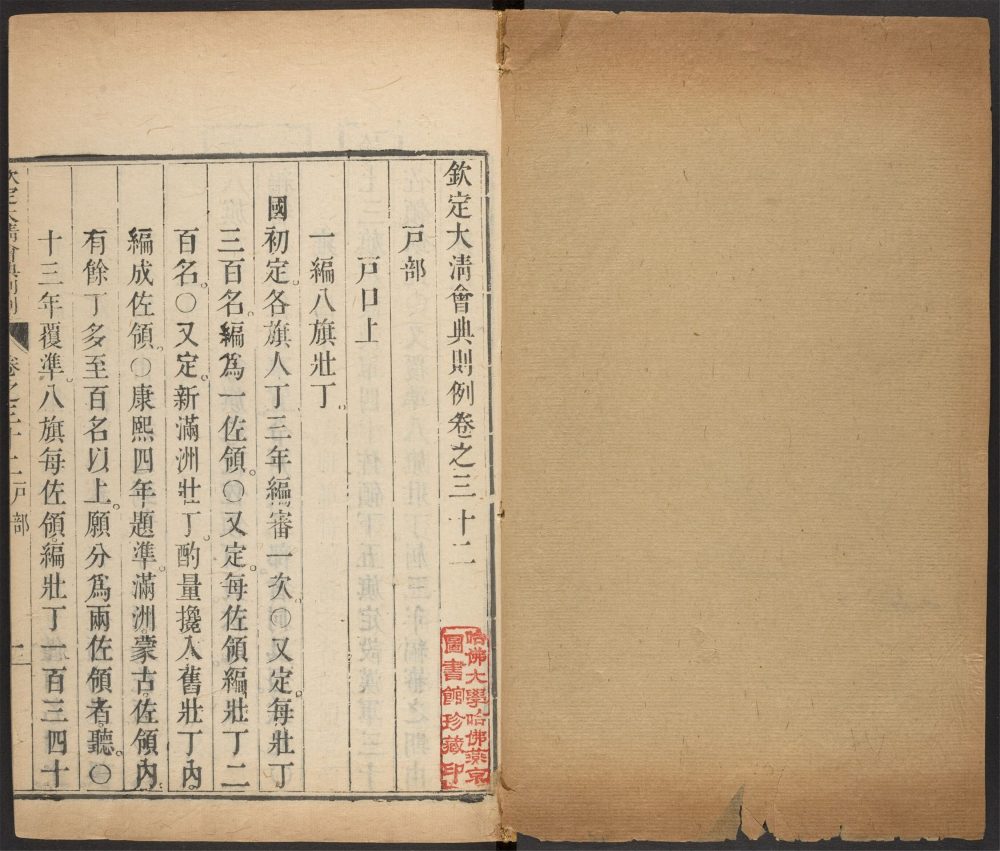 欽定大清會典則例卷之三十二
戸部
戸口上
一編八旗壯丁。
國初定各旗人丁三年編審一次。○又定。每壯丁
三百名。編爲一佐領。○又定。每佐領編壯丁二
百名。○又定。新滿洲壯丁。酌量攙入舊壯丁內。
編成佐領。○康熙四年題準。滿洲蒙古佐領內。
有餘丁多至百名以上。願分爲兩佐領者。聽。○
十三年覆準。八旗每佐領編壯丁一百三四十
欽定大清會典則例 卷之三十二戸部 一
哈佛大學哈佛燕京
圖書館珍藏印